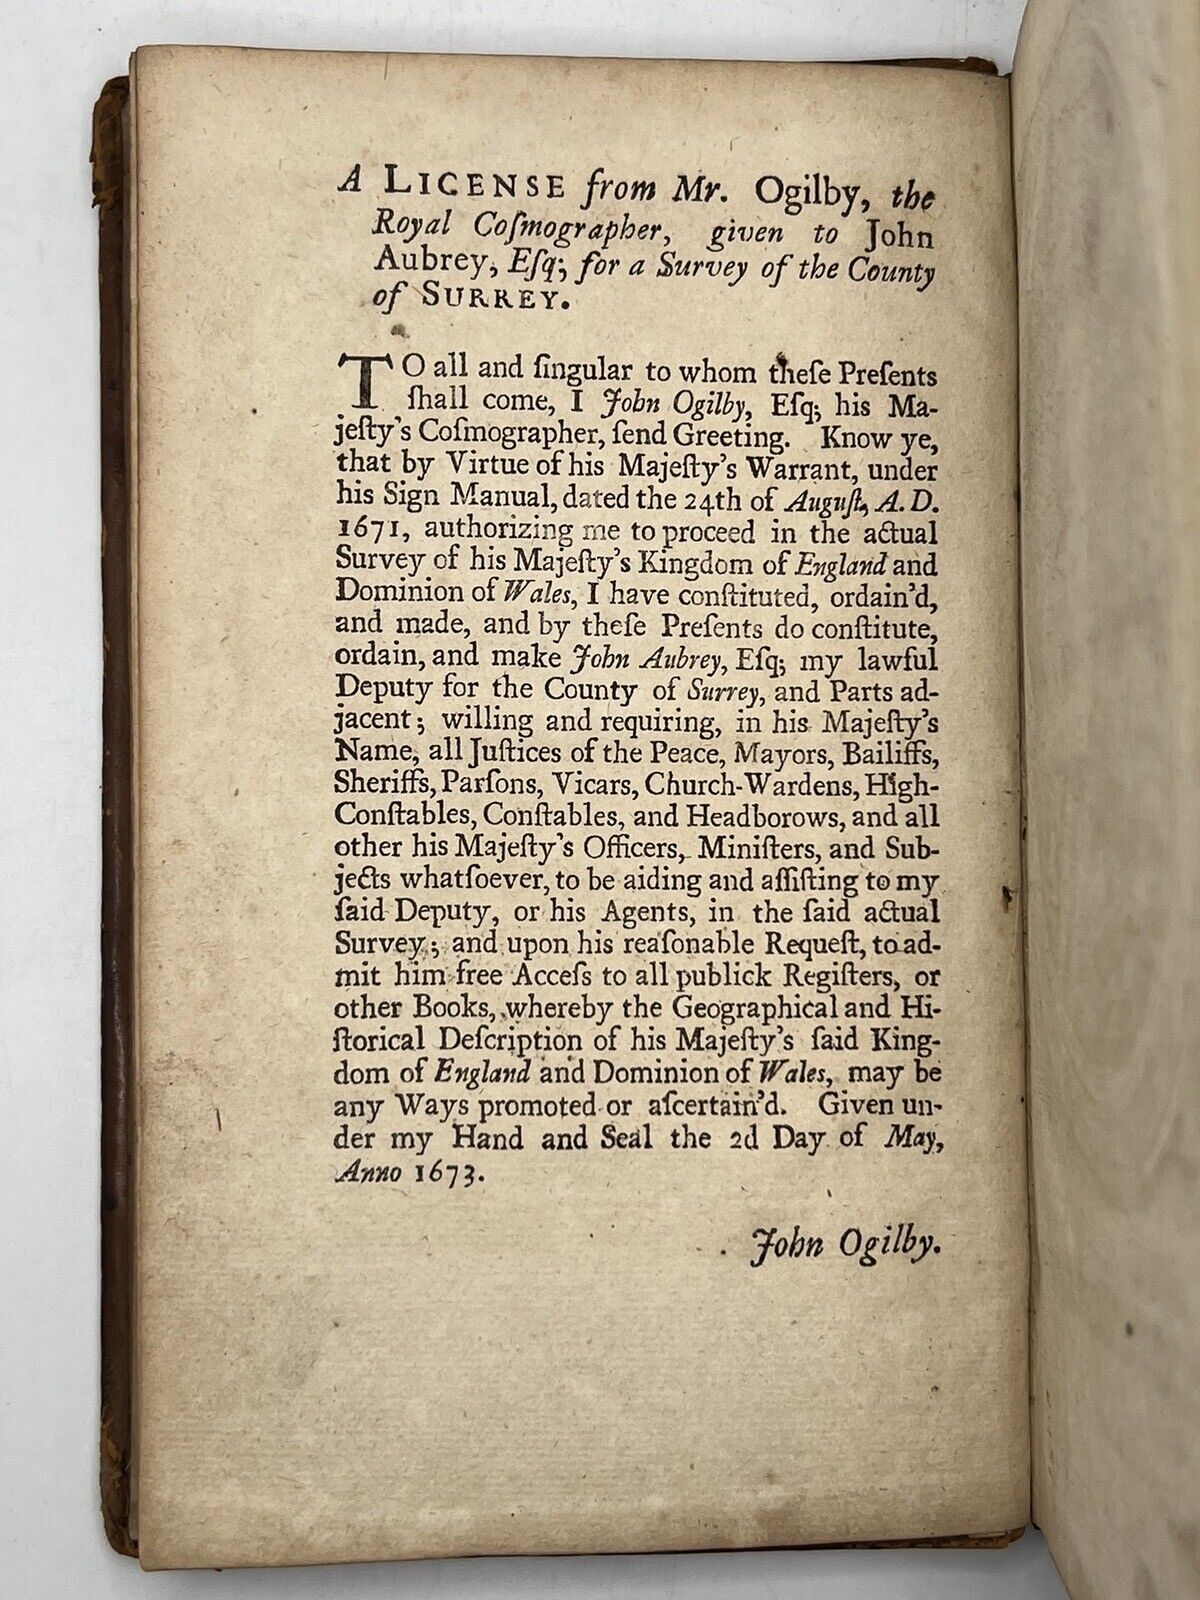 A LICENSE from Mr. Ogilby, the
Royal Coſmographer, given to John
Aubrey, Eſq; for a Survey of the County
of SURREY.
TO all and ſingular to whom theſe Preſents
ſhall come, I John Ogilby, Eſq; his Ma-
jeſty's Coſmographer, ſend Greeting. Know ye,
that by Virtue of his Majeſty's Warrant, under
his Sign Manual, dated the 24th of Auguſt, A. D.
1671, authorizing me to proceed in the actual
Survey of his Majeſty's Kingdom of England and
Dominion of Wales, I have conſtituted, ordain'd,
and made, and by theſe Preſents do conſtitute,
ordain, and make John Aubrey, Eſq; my lawful
Deputy for the County of Surrey, and Parts ad-
jacent; willing and requiring, in his Majeſty's
Name, all Juſtices of the Peace, Mayors, Bailiffs,
Sheriffs, Parſons, Vicars, Church-Wardens, High-
Conſtables, Conſtables, and Headborows, and all
other his Majeſty's Officers, Miniſters, and Sub-
jects whatſoever, to be aiding and aſſiſting to my
ſaid Deputy, or his Agents, in the ſaid actual
Survey; and upon his reaſonable Requeſt, to ad-
mit him free Acceſs to all publick Regiſters, or
other Books, whereby the Geographical and Hi-
ſtorical Deſcription of his Majeſty's ſaid King-
dom of England and Dominion of Wales, may be
any Ways promoted or aſcertain'd. Given un-
der my Hand and Seal the 2d Day of May,
Anno 1673.
John Ogilby.